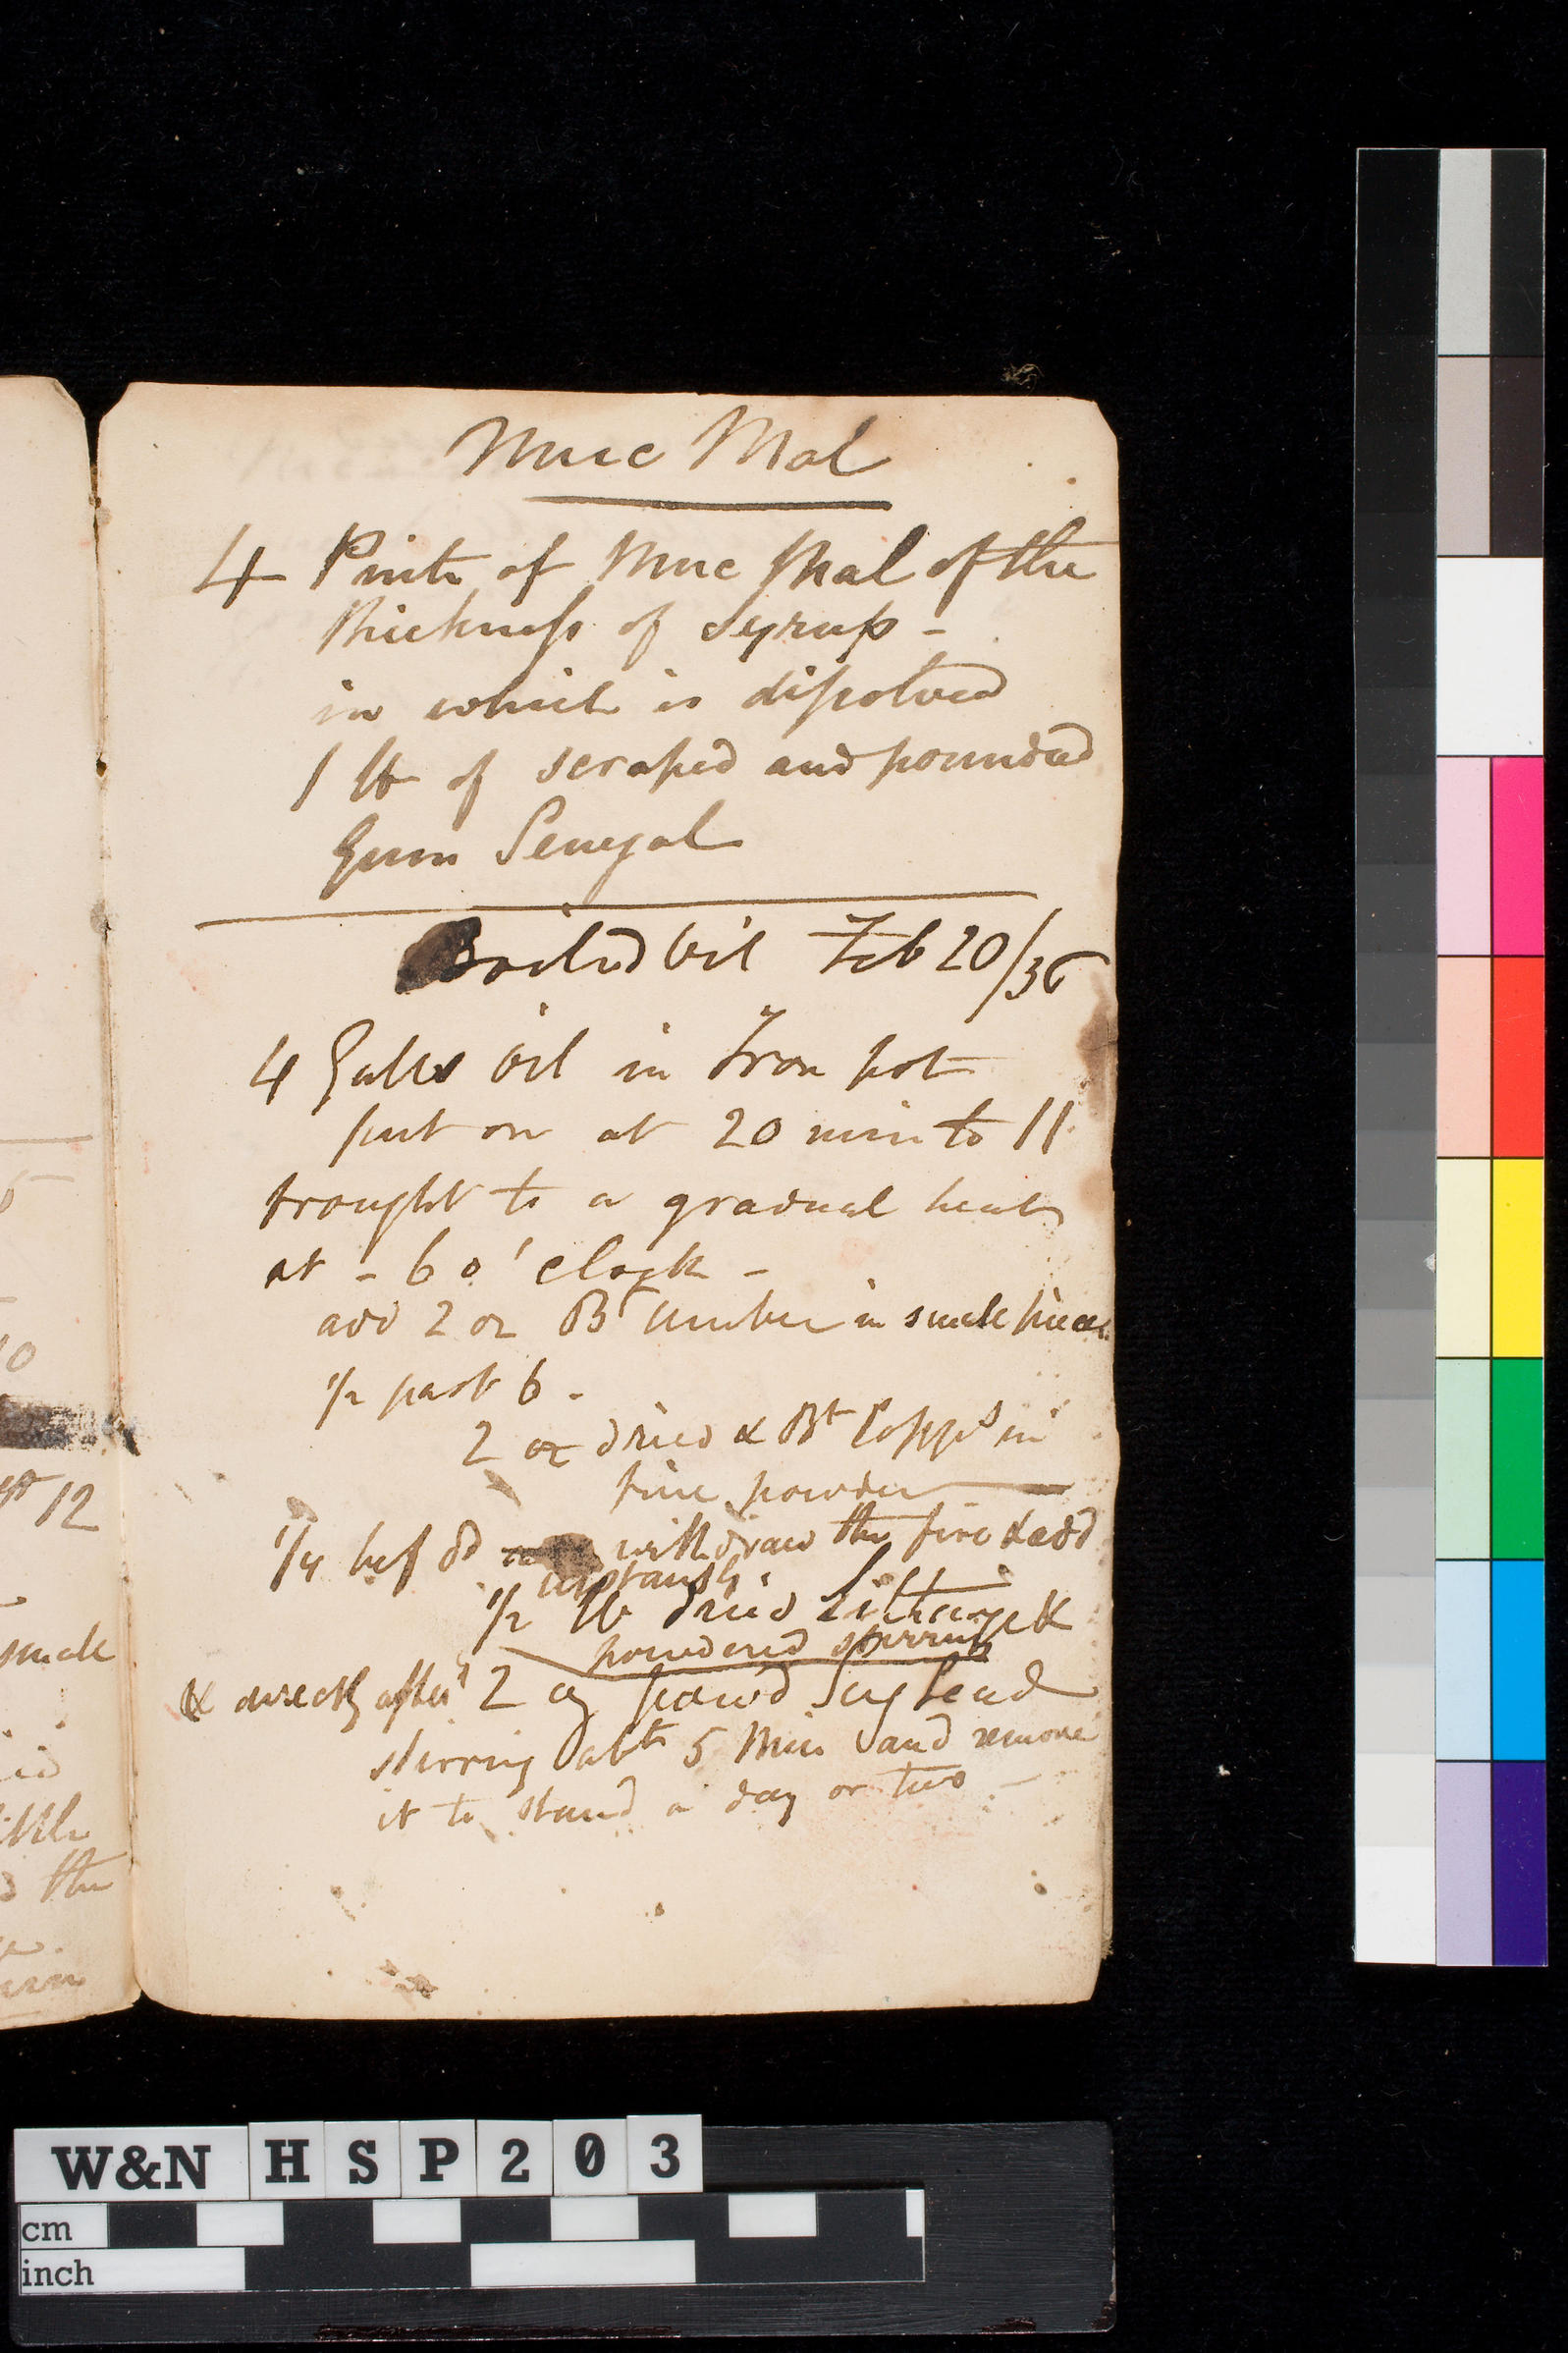 Muc Mal
4 Pints of Muc Mal of the
thickness of Syrup -
in which is dissolved
1 lb of scraped and pounded
Gum Senegal
Boiled Oil Feb 20/36
4 Galls Oil in Iron pot
put on at 20 min to 11
brought to a gradual heat
at - 6 o'clock -
add 2 oz Bt Umber in small pieces
1/2 past 6 -
2 oz dried & Bt Copps in
fine powder
1/4 bef 8d withdraw the fire & add
instantly
1/2 lb dried Litharge &
powdered stirring
& directly after 2 oz pow'd Sug Lead
stirring abt 5 Min and remove
it to stand a day or two -
12
small
the
W&N HSP203
cm
inch